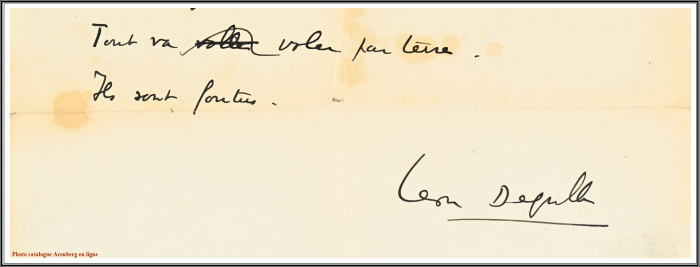 Tout va voler par terre.
Ils sont foutus.
Léon Degrelle
Photo catalogue Arenberg en ligne